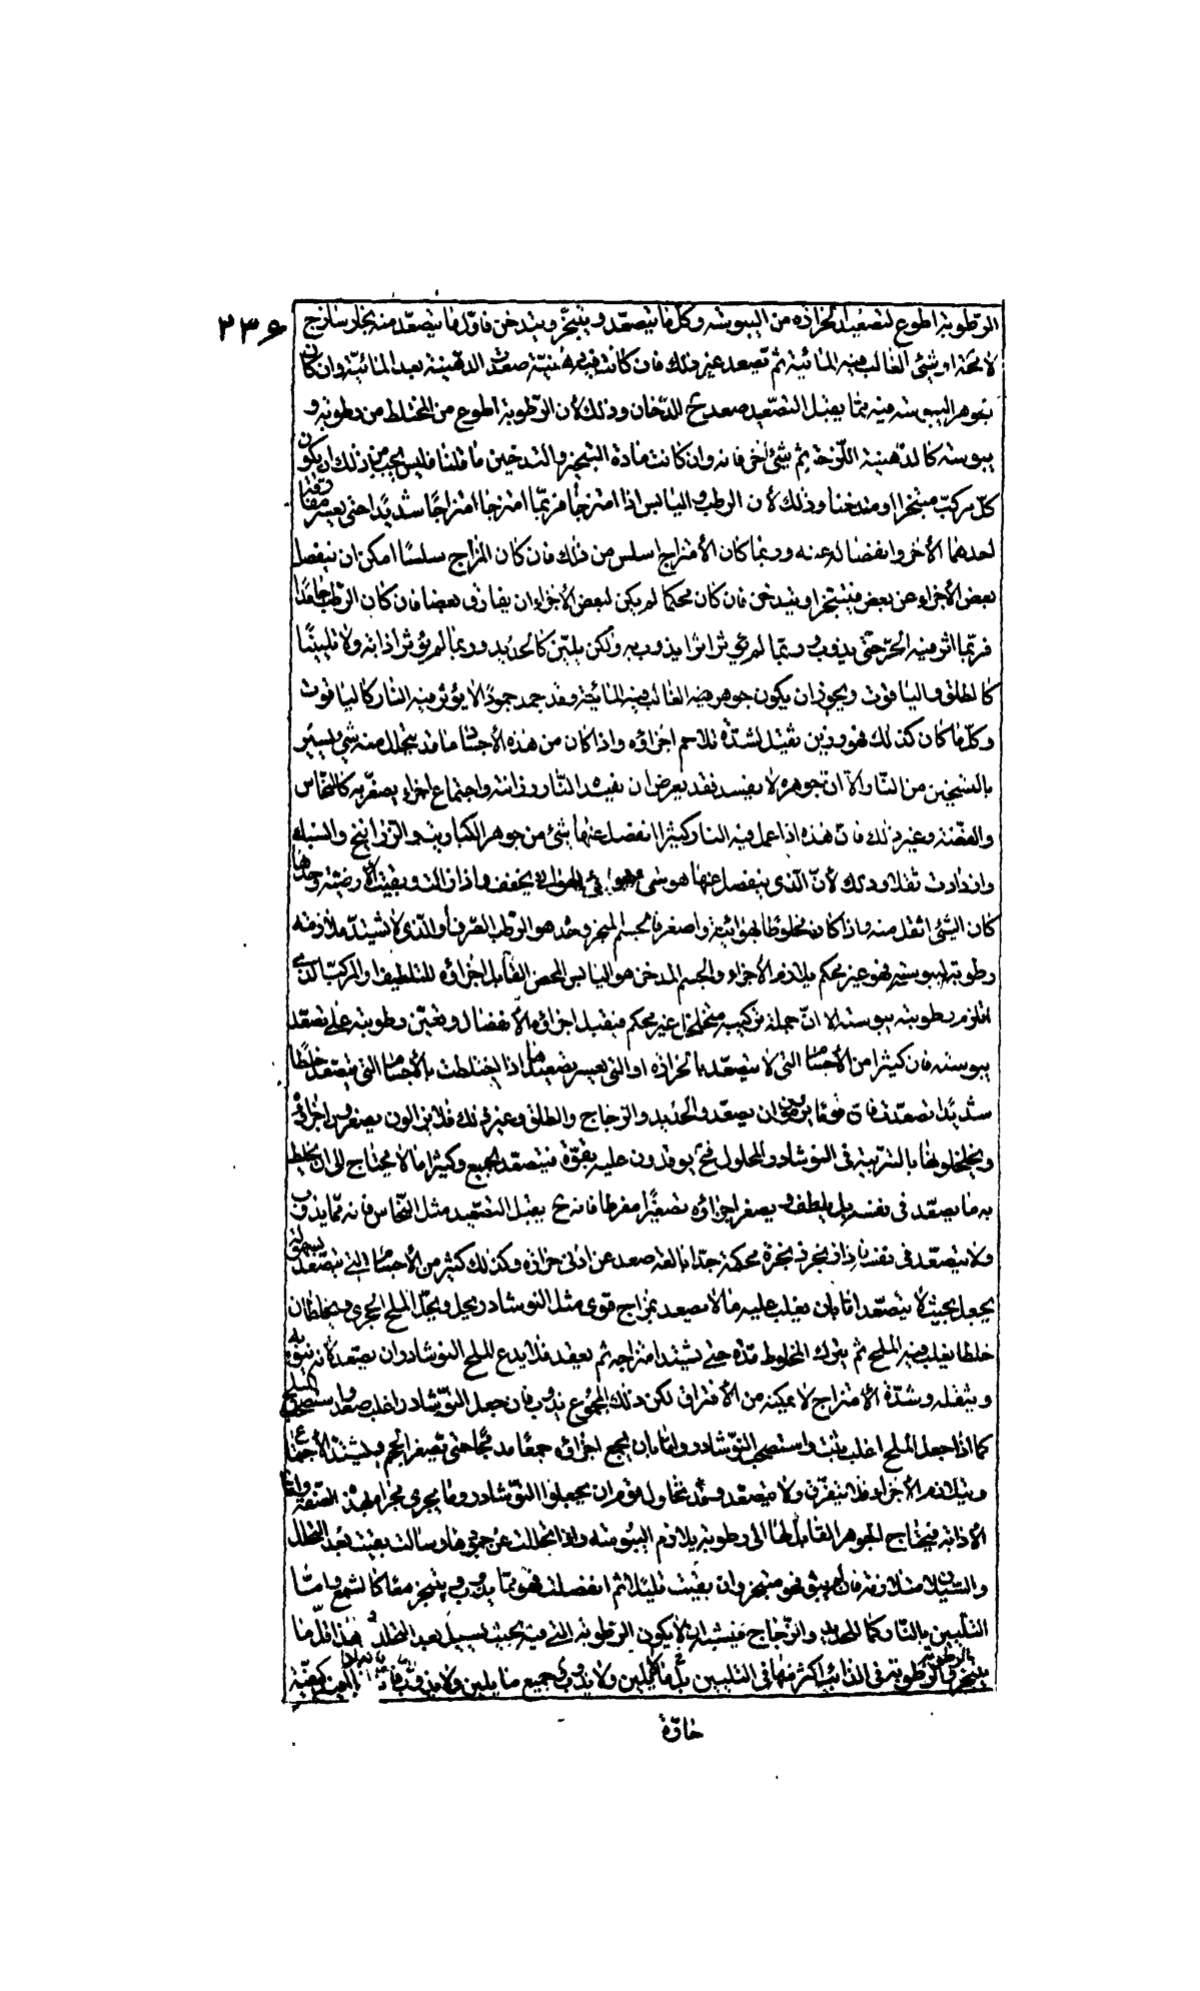 ٢٣٦
الرطوبة اطوع لتصعيد الحرارة من اليبوسة وكل ما يتصعد ويتبخر ويتدخن فاول ما يتصعد منه بخار ساذج
لا محة او شئ الغالب فيه المائية ثم تصعد غير ذلك فان كانت فيه دهنية صعدت الدهنية بعد المائية وان كان
جوهر اليبوسة فيه مما يقبل التصعيد صعد ح الدخان وذلك لأن الرطوبة اطوع من المختلط من رطوبة و
يبوسة كالدهنية اللزجة ثم شئ اخر فانه وان كانت مادة التبخير والتدخين ما قلنا فليس يجب من ذلك ان يكون
كل مركب متبخرا او متدخنا وذلك لأن الرطب واليابس اذا امتزجا فربما امتزجا امتزاجا شديدا حتى يعسر مفارقة
احدهما الأخر وانفصاله عنه وربما كان الأمتزاج اسلس من ذلك فان كان المزاج سلسا امكن ان ينفصل
بعض الأجزاء عن بعض فيتبخر او يتدخن فان كان محكما لم يكن لبعض الأجزاء ان يفارق بعضا فان كان الرطب جامدا
فربما اثر فيه الحر حتى يذوب وربما لم يؤثر اثرا يذوب به ولكن يلين كالحديد وربما لم يؤثر اذابة ولا تليينا
كالطلق والياقوت ويجوز ان يكون جوهر فيه الغالب فيه المائية وقد جمد جمودا لا يؤثر فيه النار كالياقوت
وكل ما كان كذلك فهو رزين ثقيل لشدة تلاحم اجزاؤه واذا كان من هذه الأجسام ما قد يتحلل منه شئ يسير
بالتسخين من النار الا ان جوهره لا يفسد فقد يعرض ان يفيده النار رزانة واجتماع اجزاء يصغر به كالنحاس
والفضة وغير ذلك فان هذه اذا عمل فيه النار كثيرا انفصل عنها شئ من جوهر الكباريت والزرانيخ والسبك
وازدادت ثقلا وذلك لأن الذى ينفصل عنها هو شئ هوائي يخفف واذا زالت وبقيت الأرضية وحدها
كان الشئ اثقل منه واذا كان مخلوطا بهوائية واصغر فالجسم المتبخر وحده هو الرطب الصرف او الذى لا تشتد ملازمة
رطوبته ليبوسته فهو غير محكم تلازم الأجزاء والجسم المدخن هو اليابس المحض القابل اجزاؤه للتلطيف او المركب الذى
التزم رطوبته يبوسته الا ان جملة تركيبه متخلخل غير محكم فيقبل اجزاؤه الأنفصال ويعين رطوبته على تصعد
يبوسته فان كثيرا من الأجسام التى لا يتصعد بالحرارة او التى يعسر تصعيدها اذا اختلطت بالأجسام التى يتصعد خلطا
شديدا تصعدت فان قوما يريدون ان يصعدوا الحديد والزجاج والطلق وغير ذلك فلا يزالون يصغرون اجزائه
ويخلخلونها بالتربية فى النوشادر المحلول فح يوقدون عليه بقوة فيتصعد الجميع وكثيرا ما لا يحتاج الى ان يخلط
به ما يصعد فى نفسه بل يلطف و يصغر اجزاؤه تصغيرا مفرطا فانه ح يقبل التصعيد مثل النحاس فانه مما يذوب
ولا يتصعد فى نفسه فاذا زنجر زنجرة محكمة جدا بالغة صعد عن ادنى حرارة وكذلك كثير من الأجسام التى تتصعد بسهولة
يجعل بحيث لا يتصعد اما بان يغلب عليه ما لا يصعد بمزاج قوى مثل النوشادر يحل ويحل الملح الحجرى ويخلطان
خلطا يغلب فيه الملح ثم يترك المخلوط مدة حتى يشتد امتزاجه ثم يعقد فلا يدع الملح النوشادر ان يصعد لأنه يتقوى به
ويثقله ويشدة الأمتزاج لا يمكنه من الأفتراق لكن ذلك المجموع يذوب فان جعل النوشادر اغلب صعد واستصحب الملح
كما اذا جعل الملح اغلب ثبت واستصحب النوشادر واما بان يجمع اجزاؤه جمعا مدمجا حتى يصغر الحجم ويشتد الأجتماع
ويتلازم الأجزاء فلا يتفرق ولا يتصعد وقد يحاول قوم ان يجعلوا النوشادر وما يجرى مجراه بهذه الصفة واما
الأذابة فيحتاج الجوهر القابل لها الى رطوبة يلازم اليبوسة واذا انحلت عن جمودها وسالت بقيت بعد التحلل
والسيلان متلازمة فان لم يبق فهو متبخر وان بقيت قليلا ثم انفصلت فهو مما يذوب ويتبخر معا كالشمع واما
التليين بالنار كما للحديد والزجاج فيشبه ان لا يكون الرطوبة التى فيه بحيث تسيل بعد التحلل و هذا قلما
يتبخر فالرطوبة فى الذائب اكثر منها فى التليين وجميع ما يلين ولا يذوب
خارة